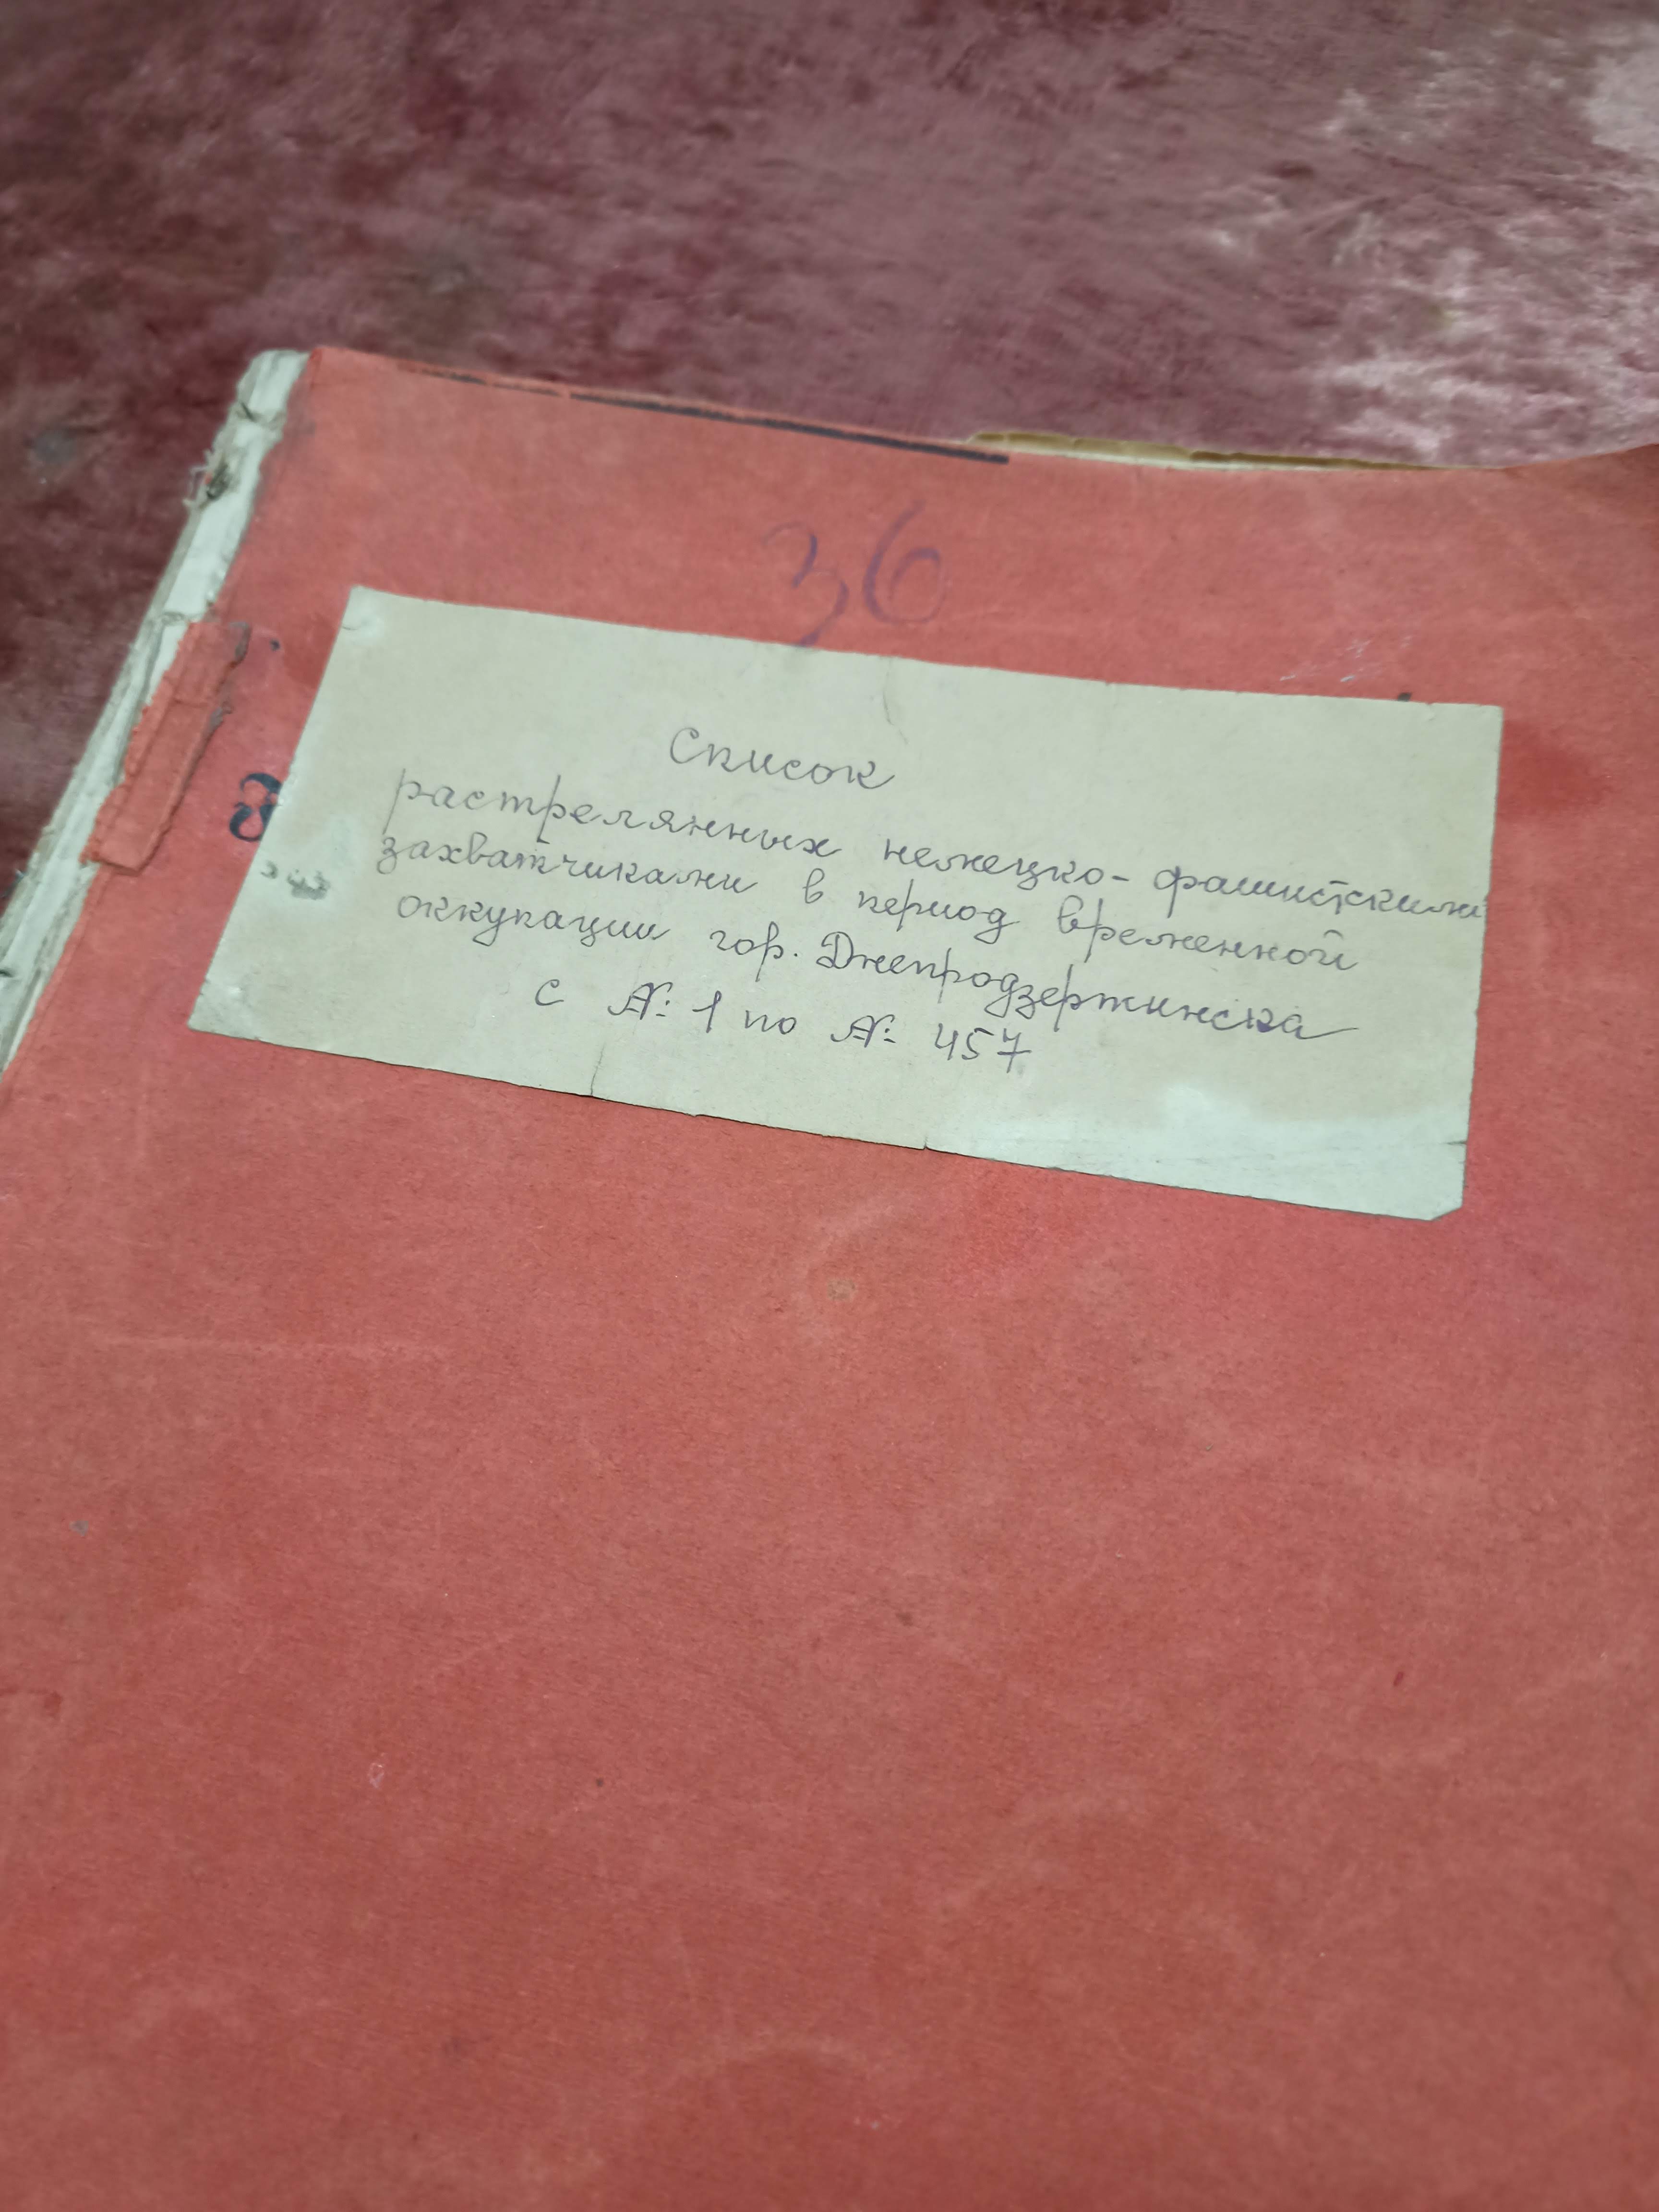 36
Список
растрелянных немецко-фашистскими
захватчиками в период временной
оккупации гор. Днепродзержинска
с №: 1 по №: 457